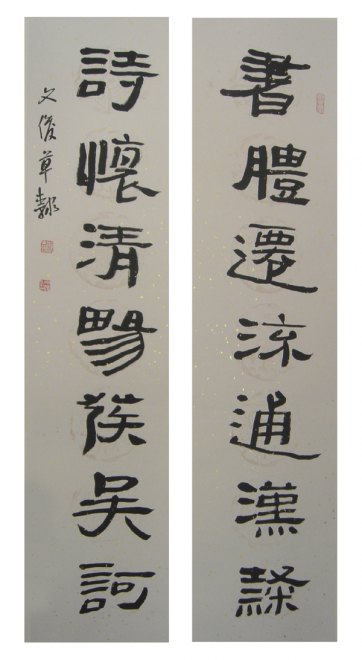 書體遷流通漢隸
詩懷清畼發吳訶
文俊草